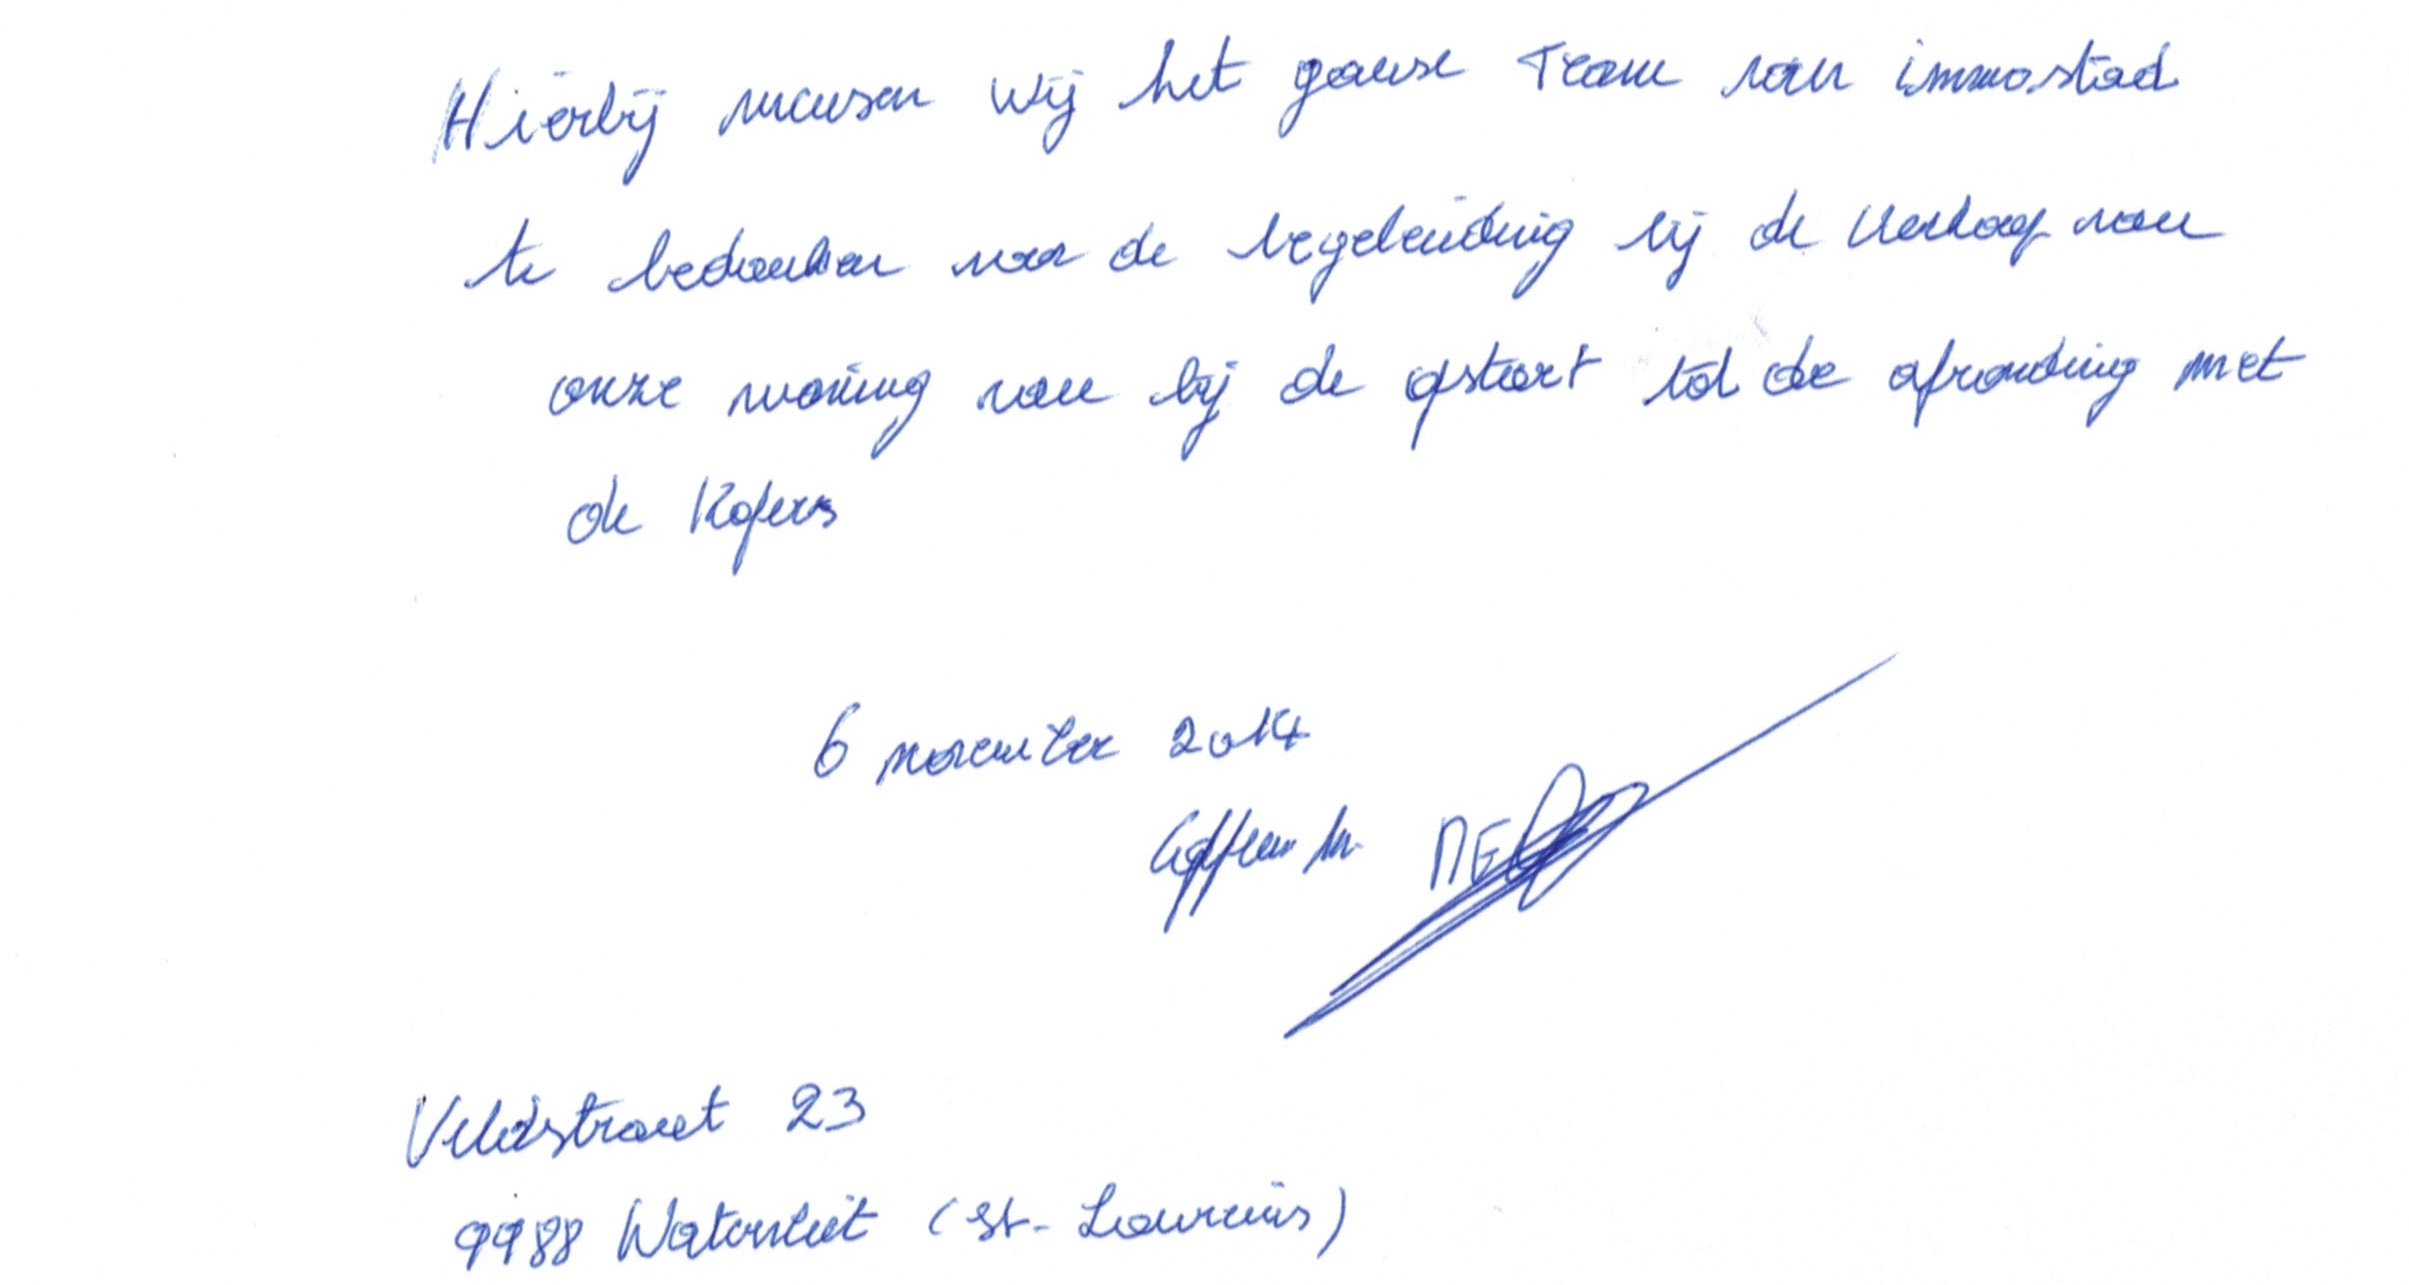 Hierbij wensen wij het ganse Team van immostad
te bedanken voor de begeleiding bij de Verkoop van
onze woning van bij de opstart tot de afronding met
de Kopers
6 november 2014
Veldstraat 23
9988 Watervliet (St-Laureins)